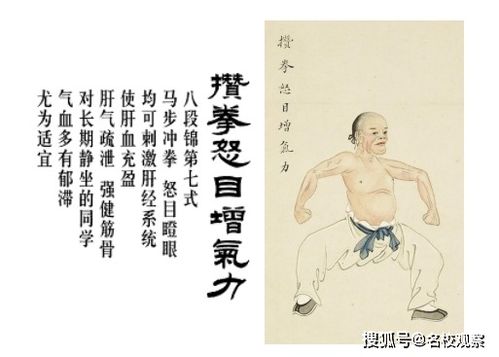 攒拳怒目增氣力
八段锦第七式
马步冲拳 怒目瞪眼
均可刺激肝经系统
使肝血充盈
肝气疏泄 强健筋骨
对长期静坐的同学
气血多有郁滞
尤为适宜
攢拳怒目增氣力
搜狐号@名校观察